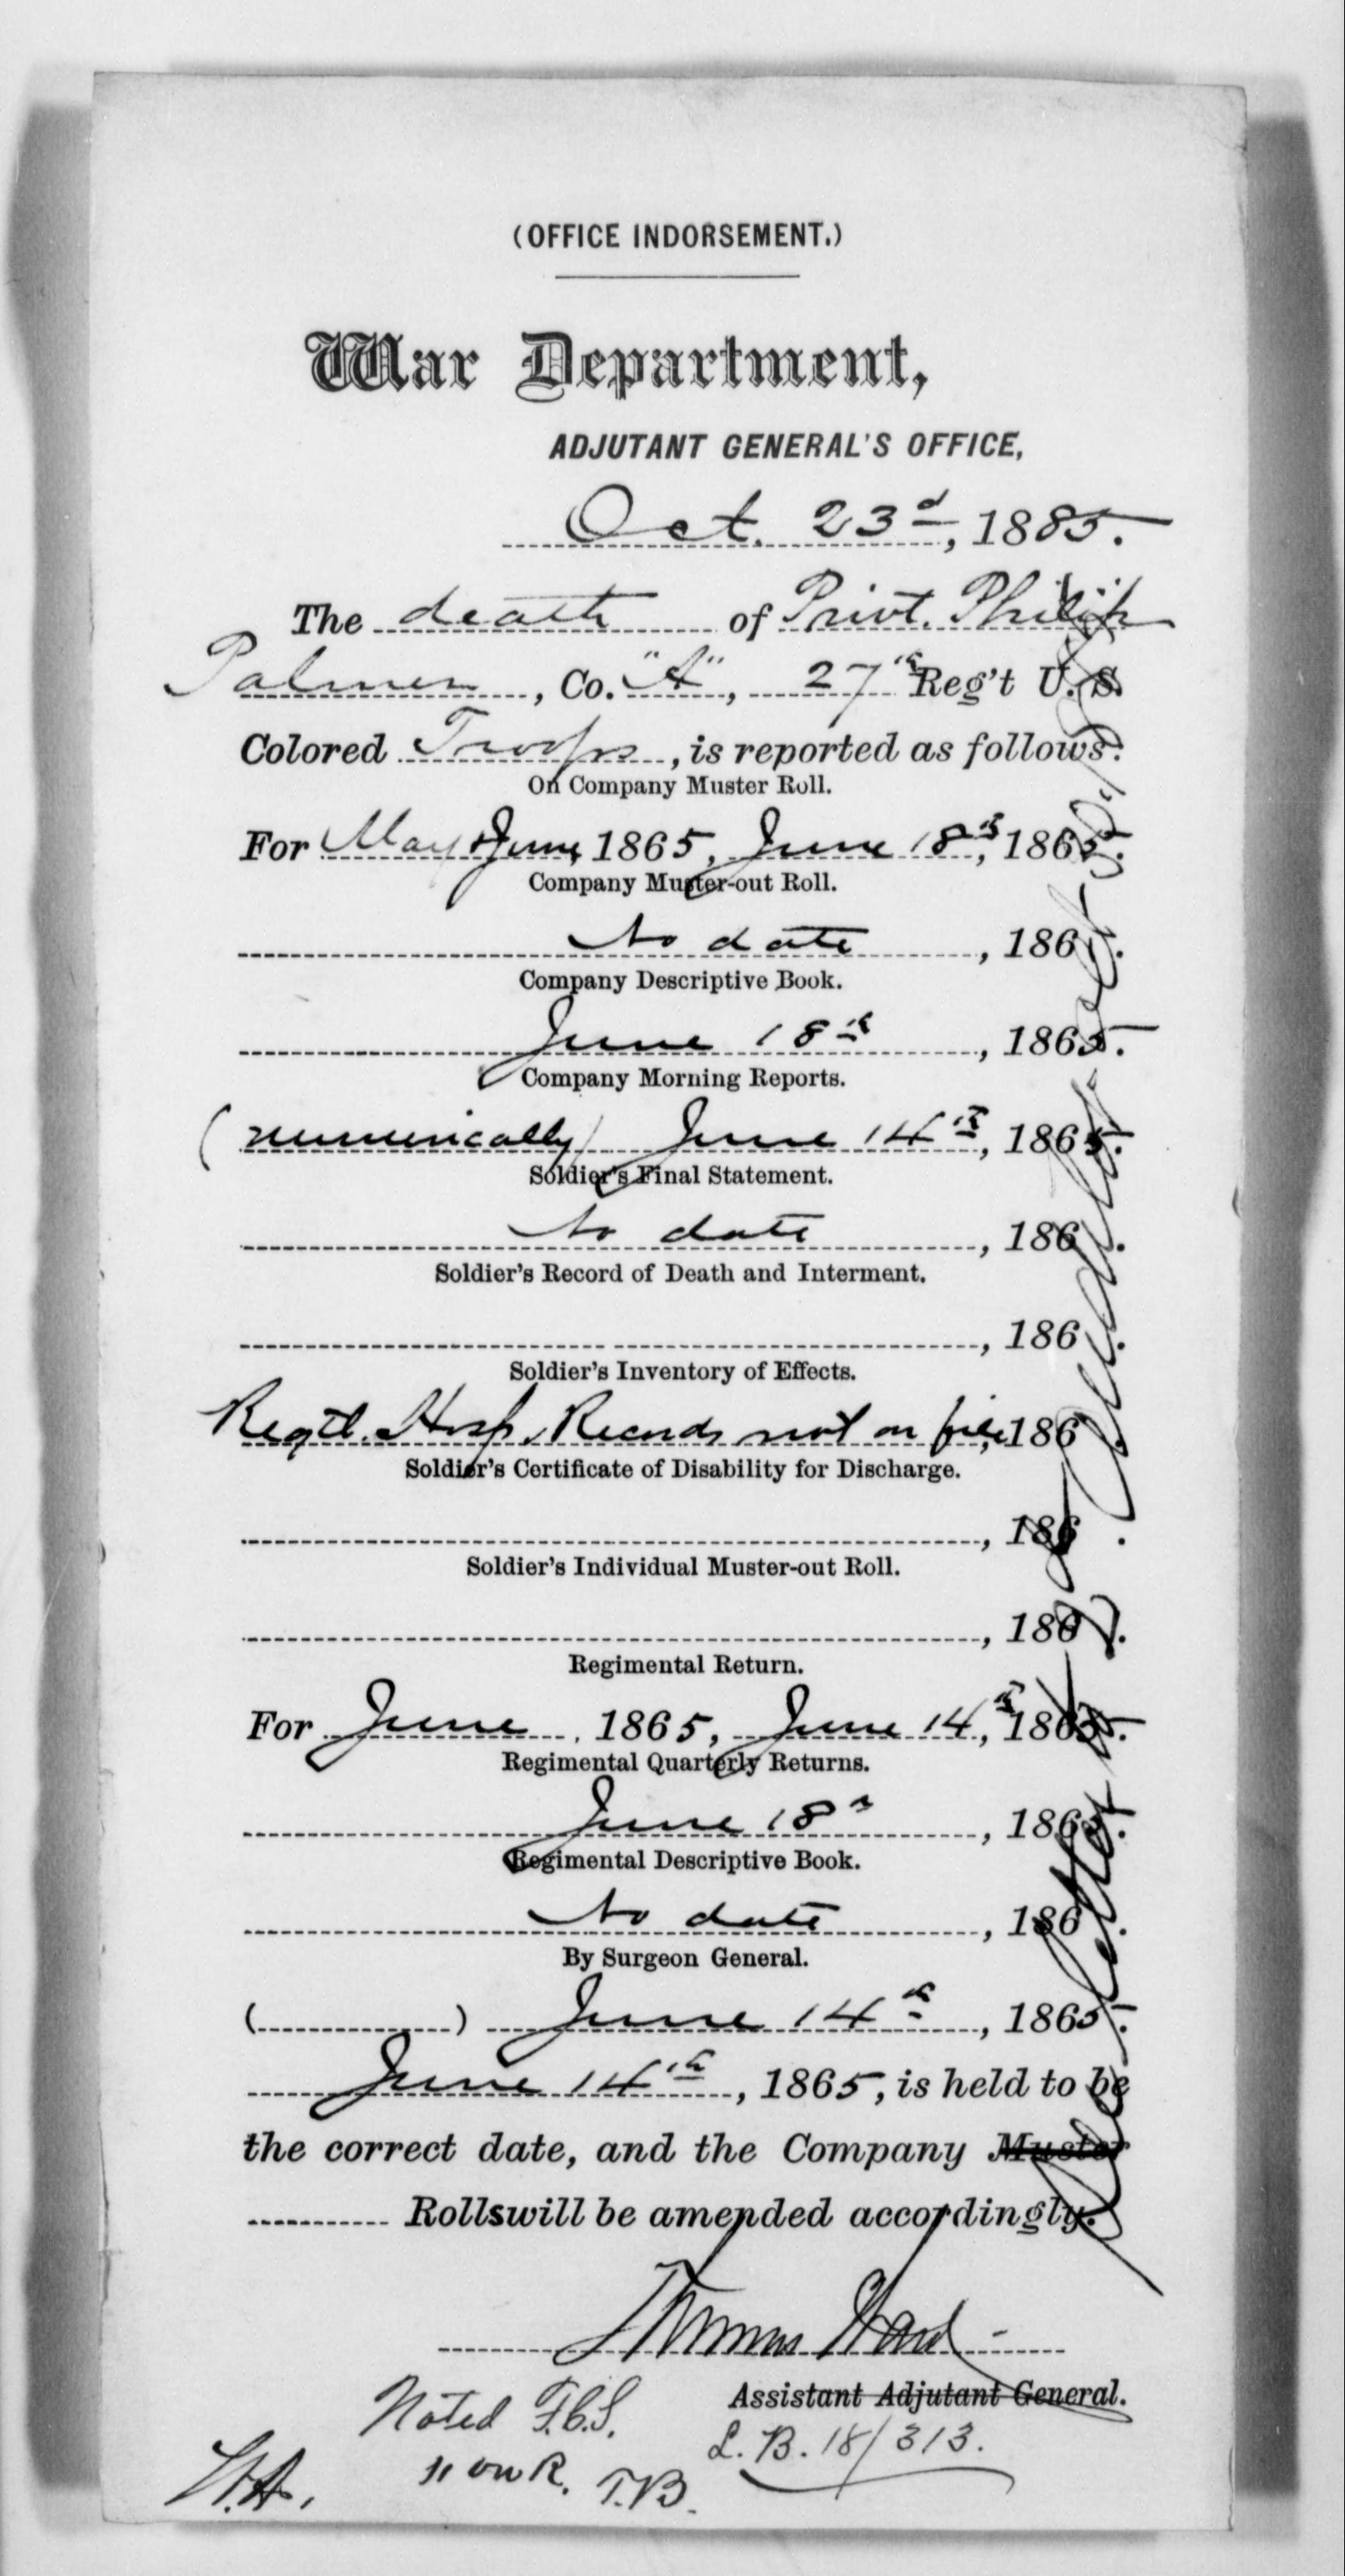 (OFFICE INDORSEMENT.)
War Department,
ADJUTANT GENERAL'S OFFICE,
Oct. 23d, 1885.
The death of Privt. Philip
Palmer, Co. "A", 27th Reg't U. S.
Colored Troops, is reported as follows:
On Company Muster Roll.
For May & June, 1865, June 18th, 1865.
Company Muster-out Roll.
No date, 186 .
Company Descriptive Book.
June 18th, 1865.
Company Morning Reports.
(numerically) June 14th, 1865.
Soldier's Final Statement.
No date, 186 .
Soldier's Record of Death and Interment.
, 186 .
Soldier's Inventory of Effects.
Regtl. Hosp. Records not on file, 186
Soldier's Certificate of Disability for Discharge.
, 186 .
Soldier's Individual Muster-out Roll.
, 186 .
Regimental Return.
For June, 1865, June 14th, 1865.
Regimental Quarterly Returns.
June 18th, 1865.
Regimental Descriptive Book.
No date, 186 .
By Surgeon General.
( ) June 14th, 1865.
June 14th, 1865, is held to be
the correct date, and the Company Muster
Rolls will be amended accordingly.
Thomas Ward
Assistant Adjutant General.
Noted F.C.S. L. B. 18/313.
" on R. T.B.